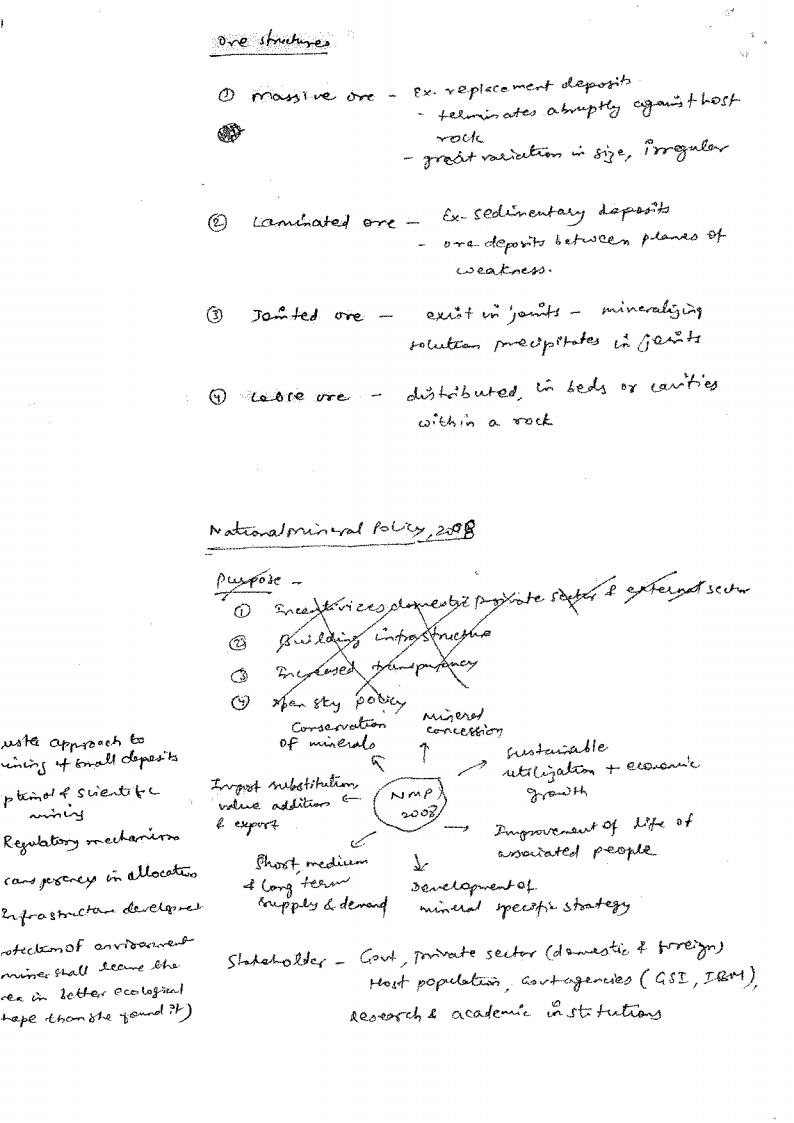 Ore structures
① Massive ore – Ex. replacement deposits
- terminates abruptly against host
rock
- great variation in size, irregular
② Laminated ore – Ex- sedimentary deposits
- ore deposits between planes of
weakness.
③ Jointed ore – exist in joints – mineralizing
solution precipitates in joints
④ Loose ore – distributed, in beds or cavities
within a rock
National Mineral Policy, 2008
Purpose –
① Incentivizes domestic private sector & external sector
② Building infrastructure
③ Increased transparency
④ open sky policy
Conservation
of minerals
Mineral
concession
Sustainable
utilization + economic
growth
Import substitution,
value addition
& export
NMP
2008
Improvement of life of
associated people
Short, medium
& long term
supply & demand
Development of
mineral specific strategy
approach to
mining of small deposits
& scientific
mining
Regulatory mechanism
in allocation
Infrastructure development
of environment
miner shall leave the
in better ecological
than she found it)
Stakeholder – Govt, private sector (domestic & foreign)
Host population, Govt agencies (GSI, IBM),
Research & academic institutions